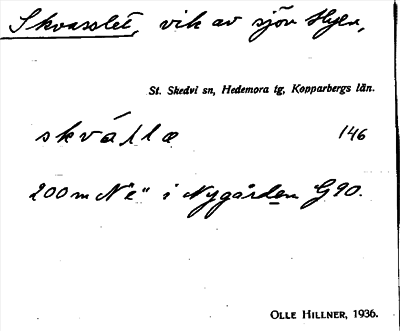 Skvasslet, vik av sjön Hyen,
St. Skedvi sn, Hedemora tg, Kopparbergs län.
skvállæ 146
200 m N "e" i Nygården G90.
OLLE HILLNER, 1936.